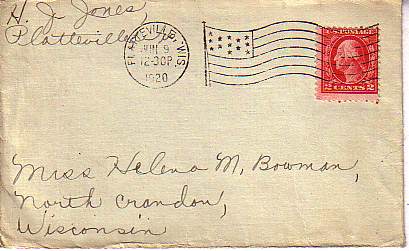 H. J. Jones
Platteville
PLATTEVILLE, WIS.
JUN 9
12-30P.
1920
U.S. POSTAGE
2 CENTS 2
Miss Helena M. Bowman,
North Crandon,
Wisconsin